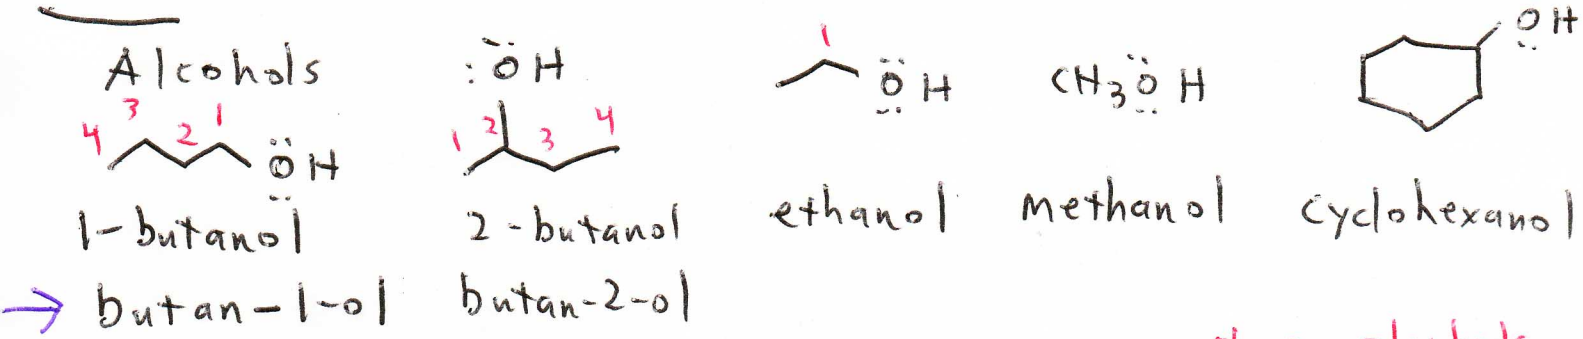 Alcohols
4 3 2 1
ÖH
1-butanol
→ butan-1-ol
:ÖH
1 2 3 4
2-butanol
butan-2-ol
1
ÖH
ethanol
CH₃ÖH
methanol
OH
cyclohexanol